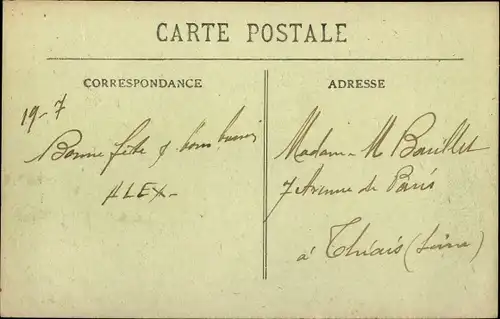 CARTE POSTALE
CORRESPONDANCE
ADRESSE
19-7
Bonne fête & bons baisers
ALEX-
Madame M Bouillet
7 Avenue de Paris
à Thiais (Seine)